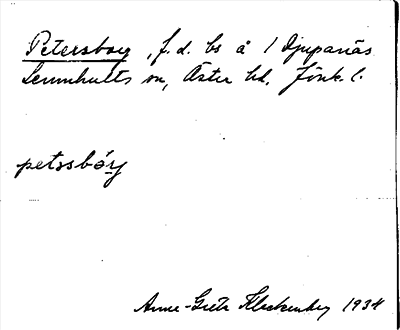 Petersborg, f.d. bs å 1 Djupanäs
Lemnhults sn, Öster hd, Jönk. l.
petssbórj
Anna-Greta Fleckenberg 1934